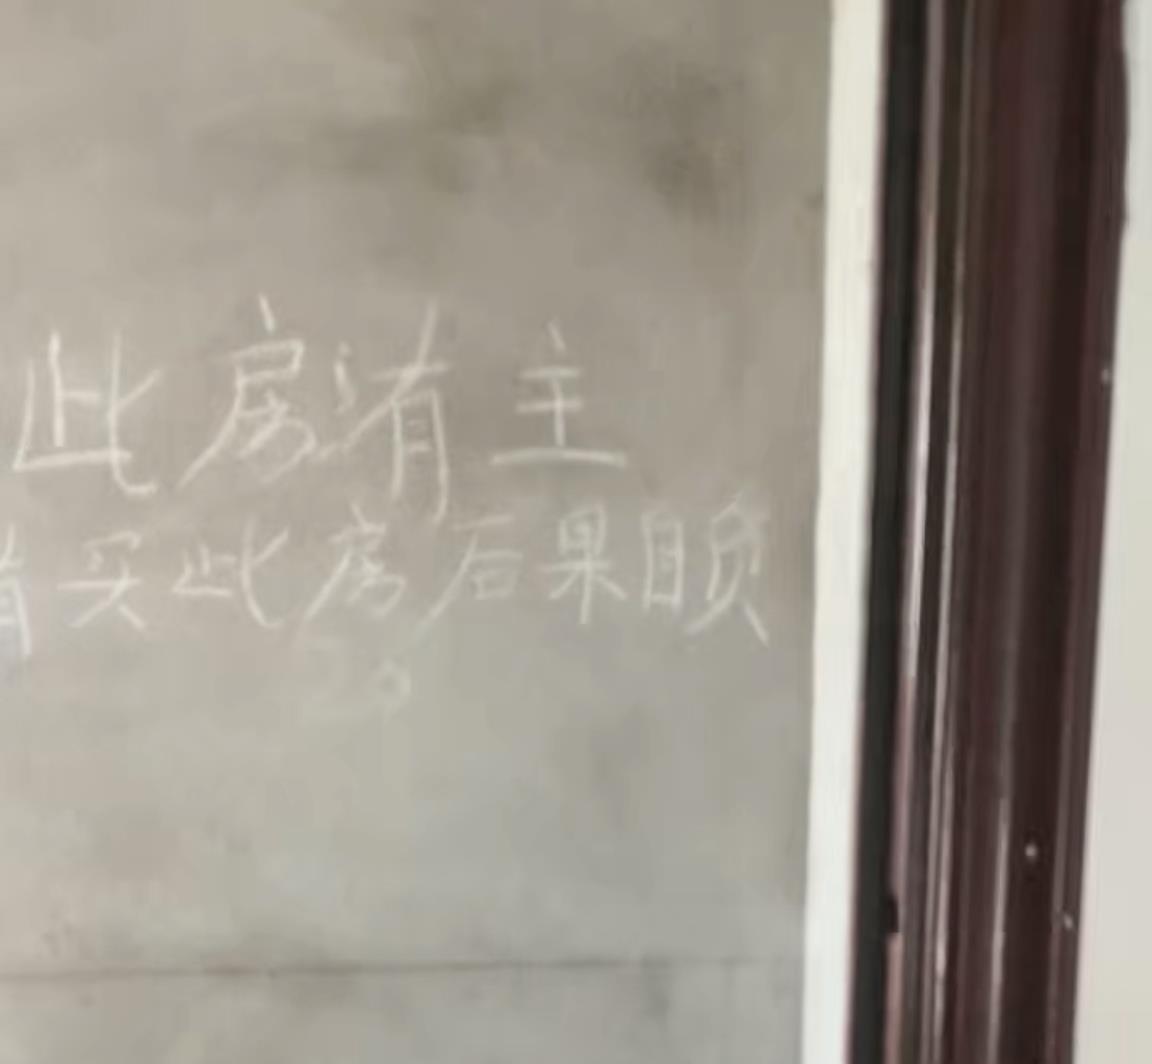 此房有主
有买此房后果自负
20